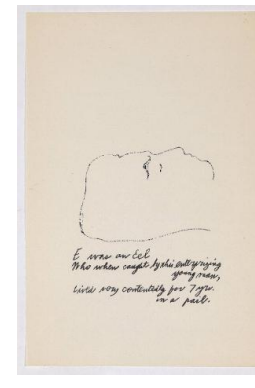 E was an Eel
Who when caught by this enterprizing
young man,
Lived very contentedly for 7 yrs.
in a pail.